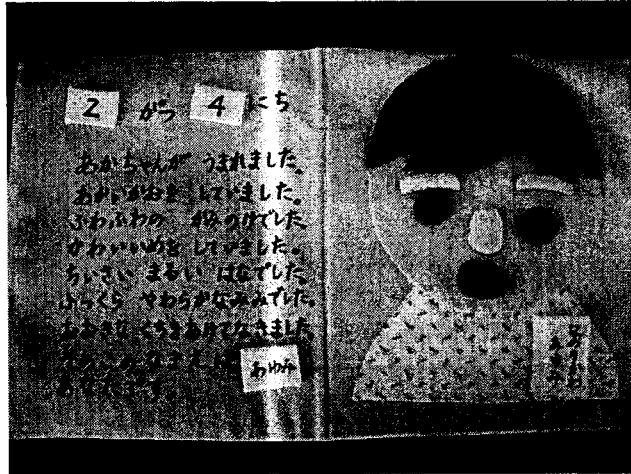 2 がつ 4 にち
あかちゃんが うまれました。
あかいかおを していました。
ふわふわの かみのけでした
かわいいめを していました。
ちいさい まるい はなでした。
ふっくら やわらかなみみでした。
おおきな くちをあけてなきました
あゆみ